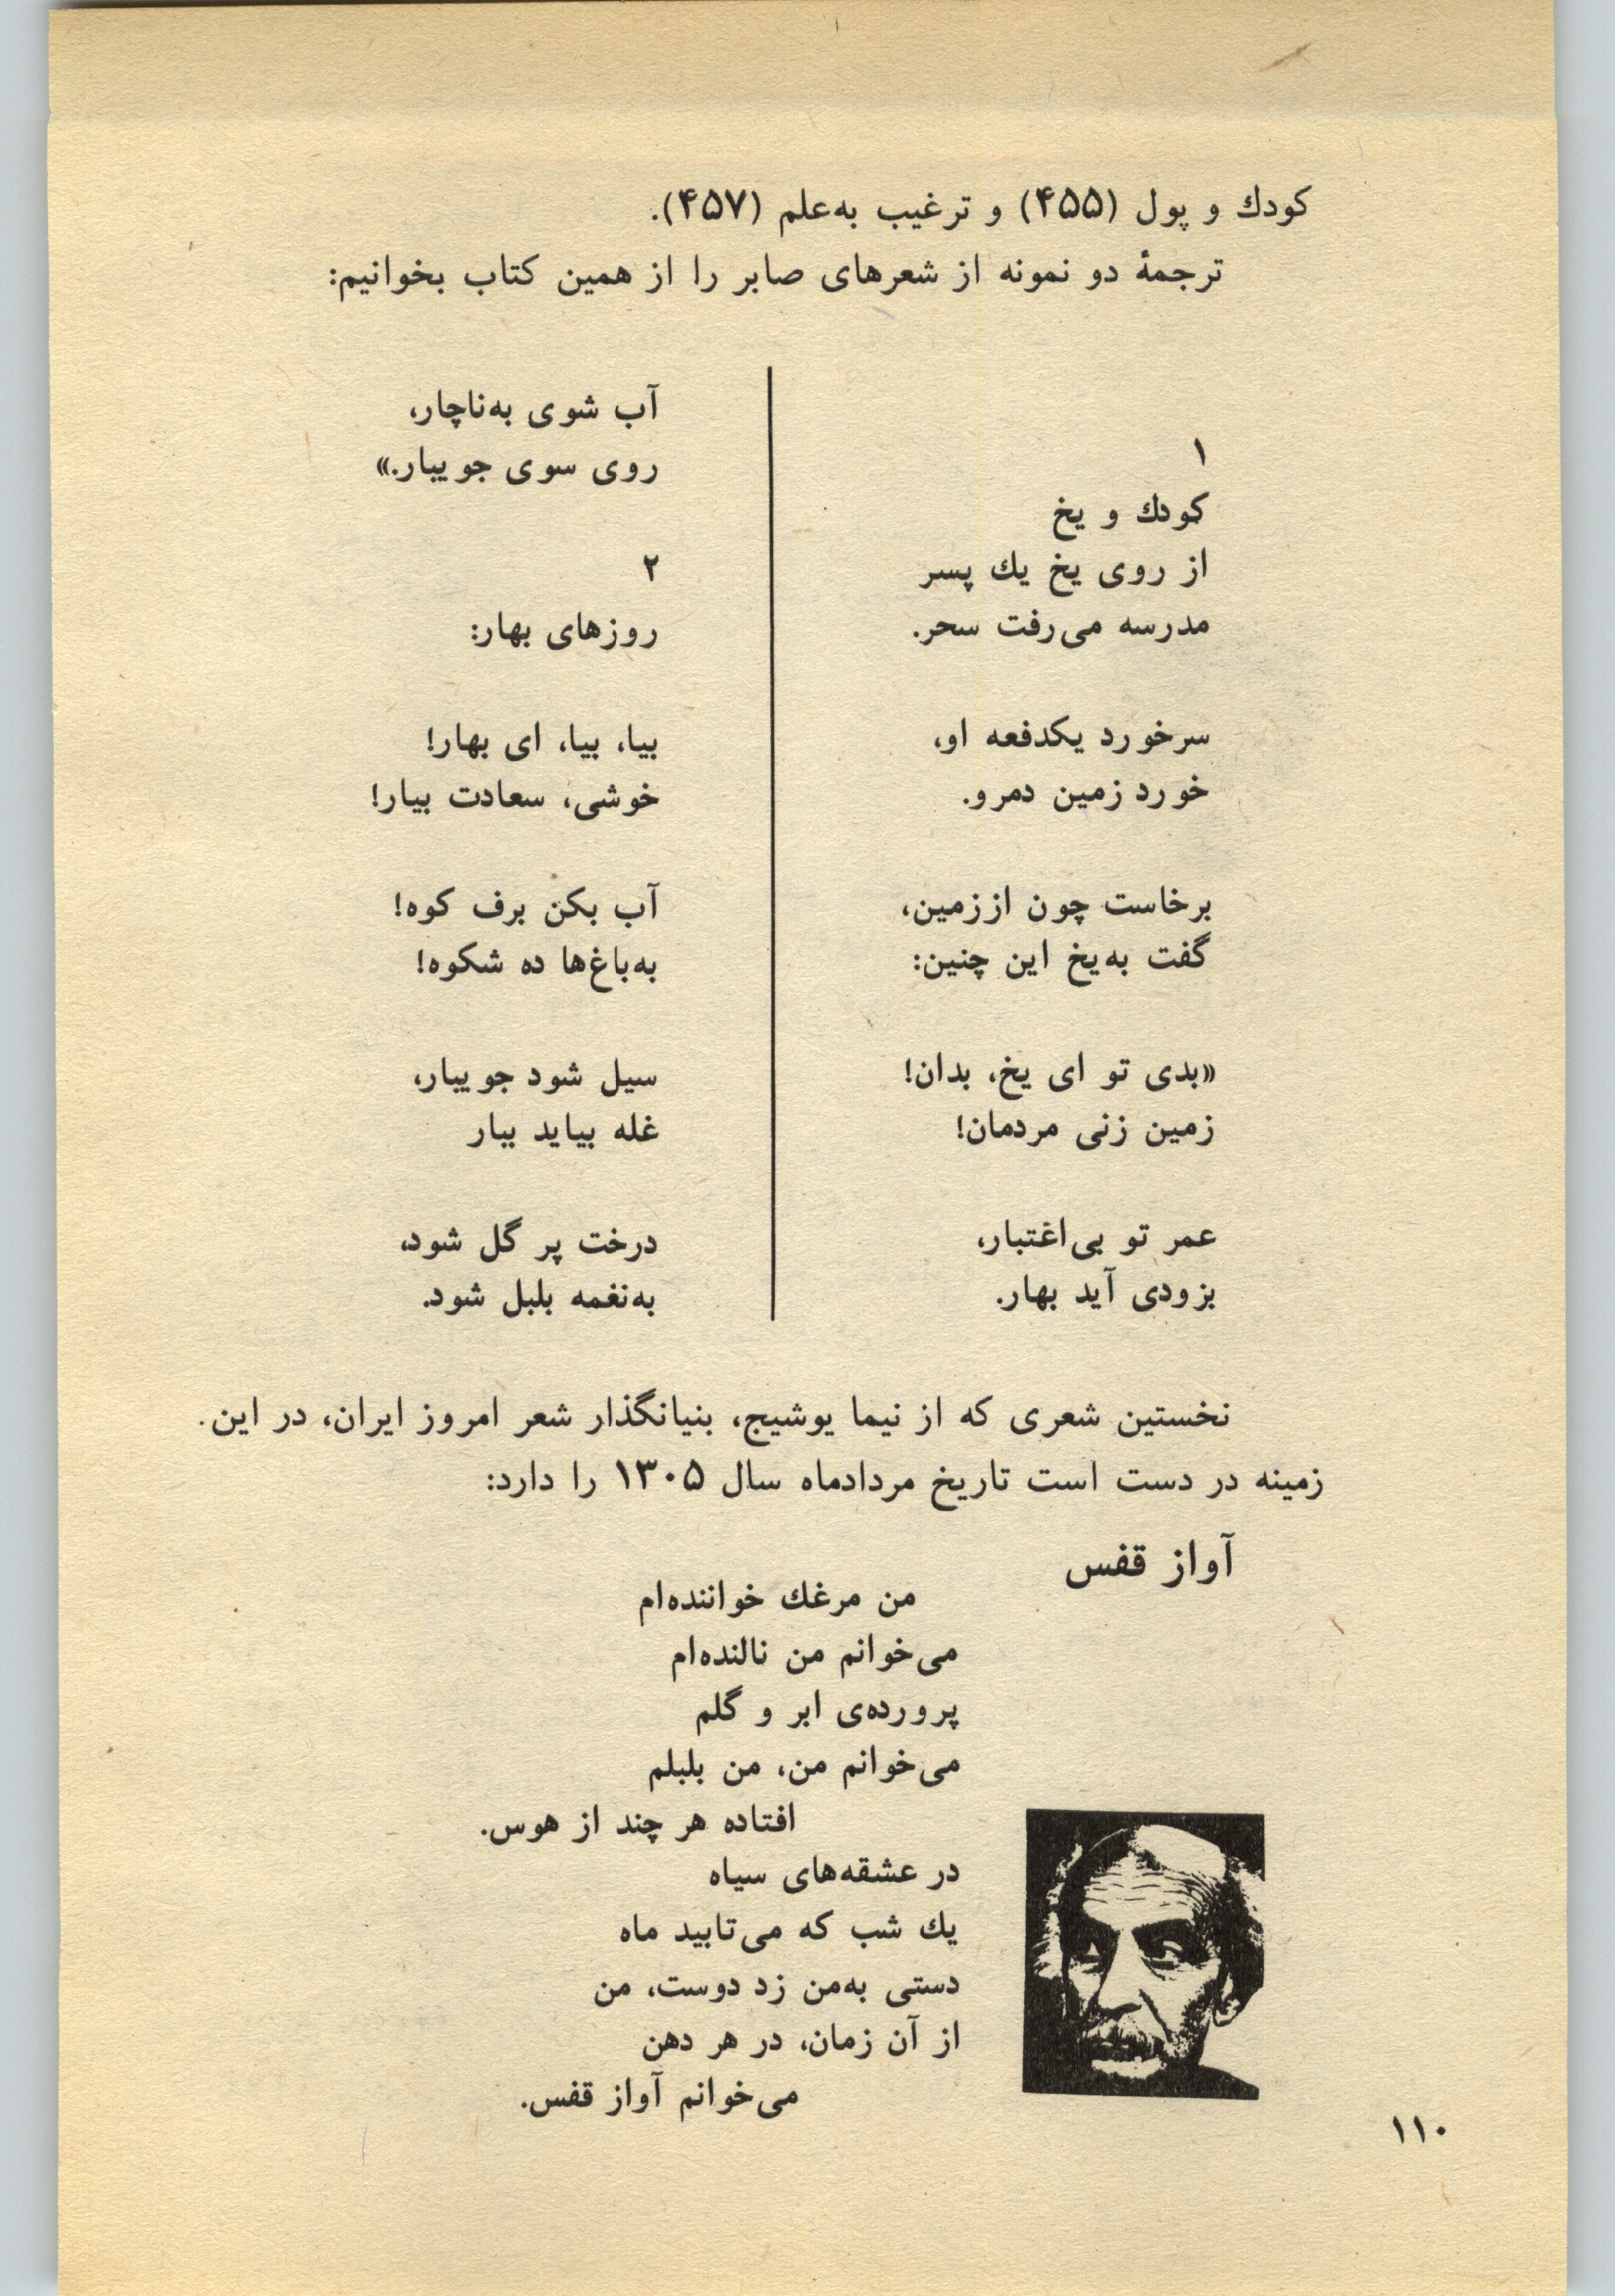 کودك و پول (۴۵۵) و ترغیب به‌علم (۴۵۷).
ترجمهٔ دو نمونه از شعرهای صابر را از همین کتاب بخوانیم:
۱
کودك و یخ
از روی یخ یك پسر
مدرسه می‌رفت سحر.
سرخورد یکدفعه او،
خورد زمین دمرو.
برخاست چون اززمین،
گفت به‌یخ این چنین:
«بدی تو ای یخ، بدان!
زمین زنی مردمان!
عمر تو بی‌اغتبار،
بزودی آید بهار.
آب شوی به‌ناچار،
روی سوی جویبار.»
۲
روزهای بهار:
بیا، بیا، ای بهار!
خوشی، سعادت بیار!
آب بکن برف کوه!
به‌باغ‌ها ده شکوه!
سیل شود جویبار،
غله بیاید ببار
درخت پر گل شود،
به‌نغمه بلبل شود.
نخستین شعری که از نیما یوشیج، بنیانگذار شعر امروز ایران، در این
زمینه در دست است تاریخ مردادماه سال ۱۳۰۵ را دارد:
آواز قفس
من مرغك خواننده‌ام
می‌خوانم من نالنده‌ام
پرورده‌ی ابر و گلم
می‌خوانم من، من بلبلم
افتاده هر چند از هوس.
در عشقه‌های سیاه
یك شب که می‌تابید ماه
دستی به‌من زد دوست، من
از آن زمان، در هر دهن
می‌خوانم آواز قفس.
۱۱۰